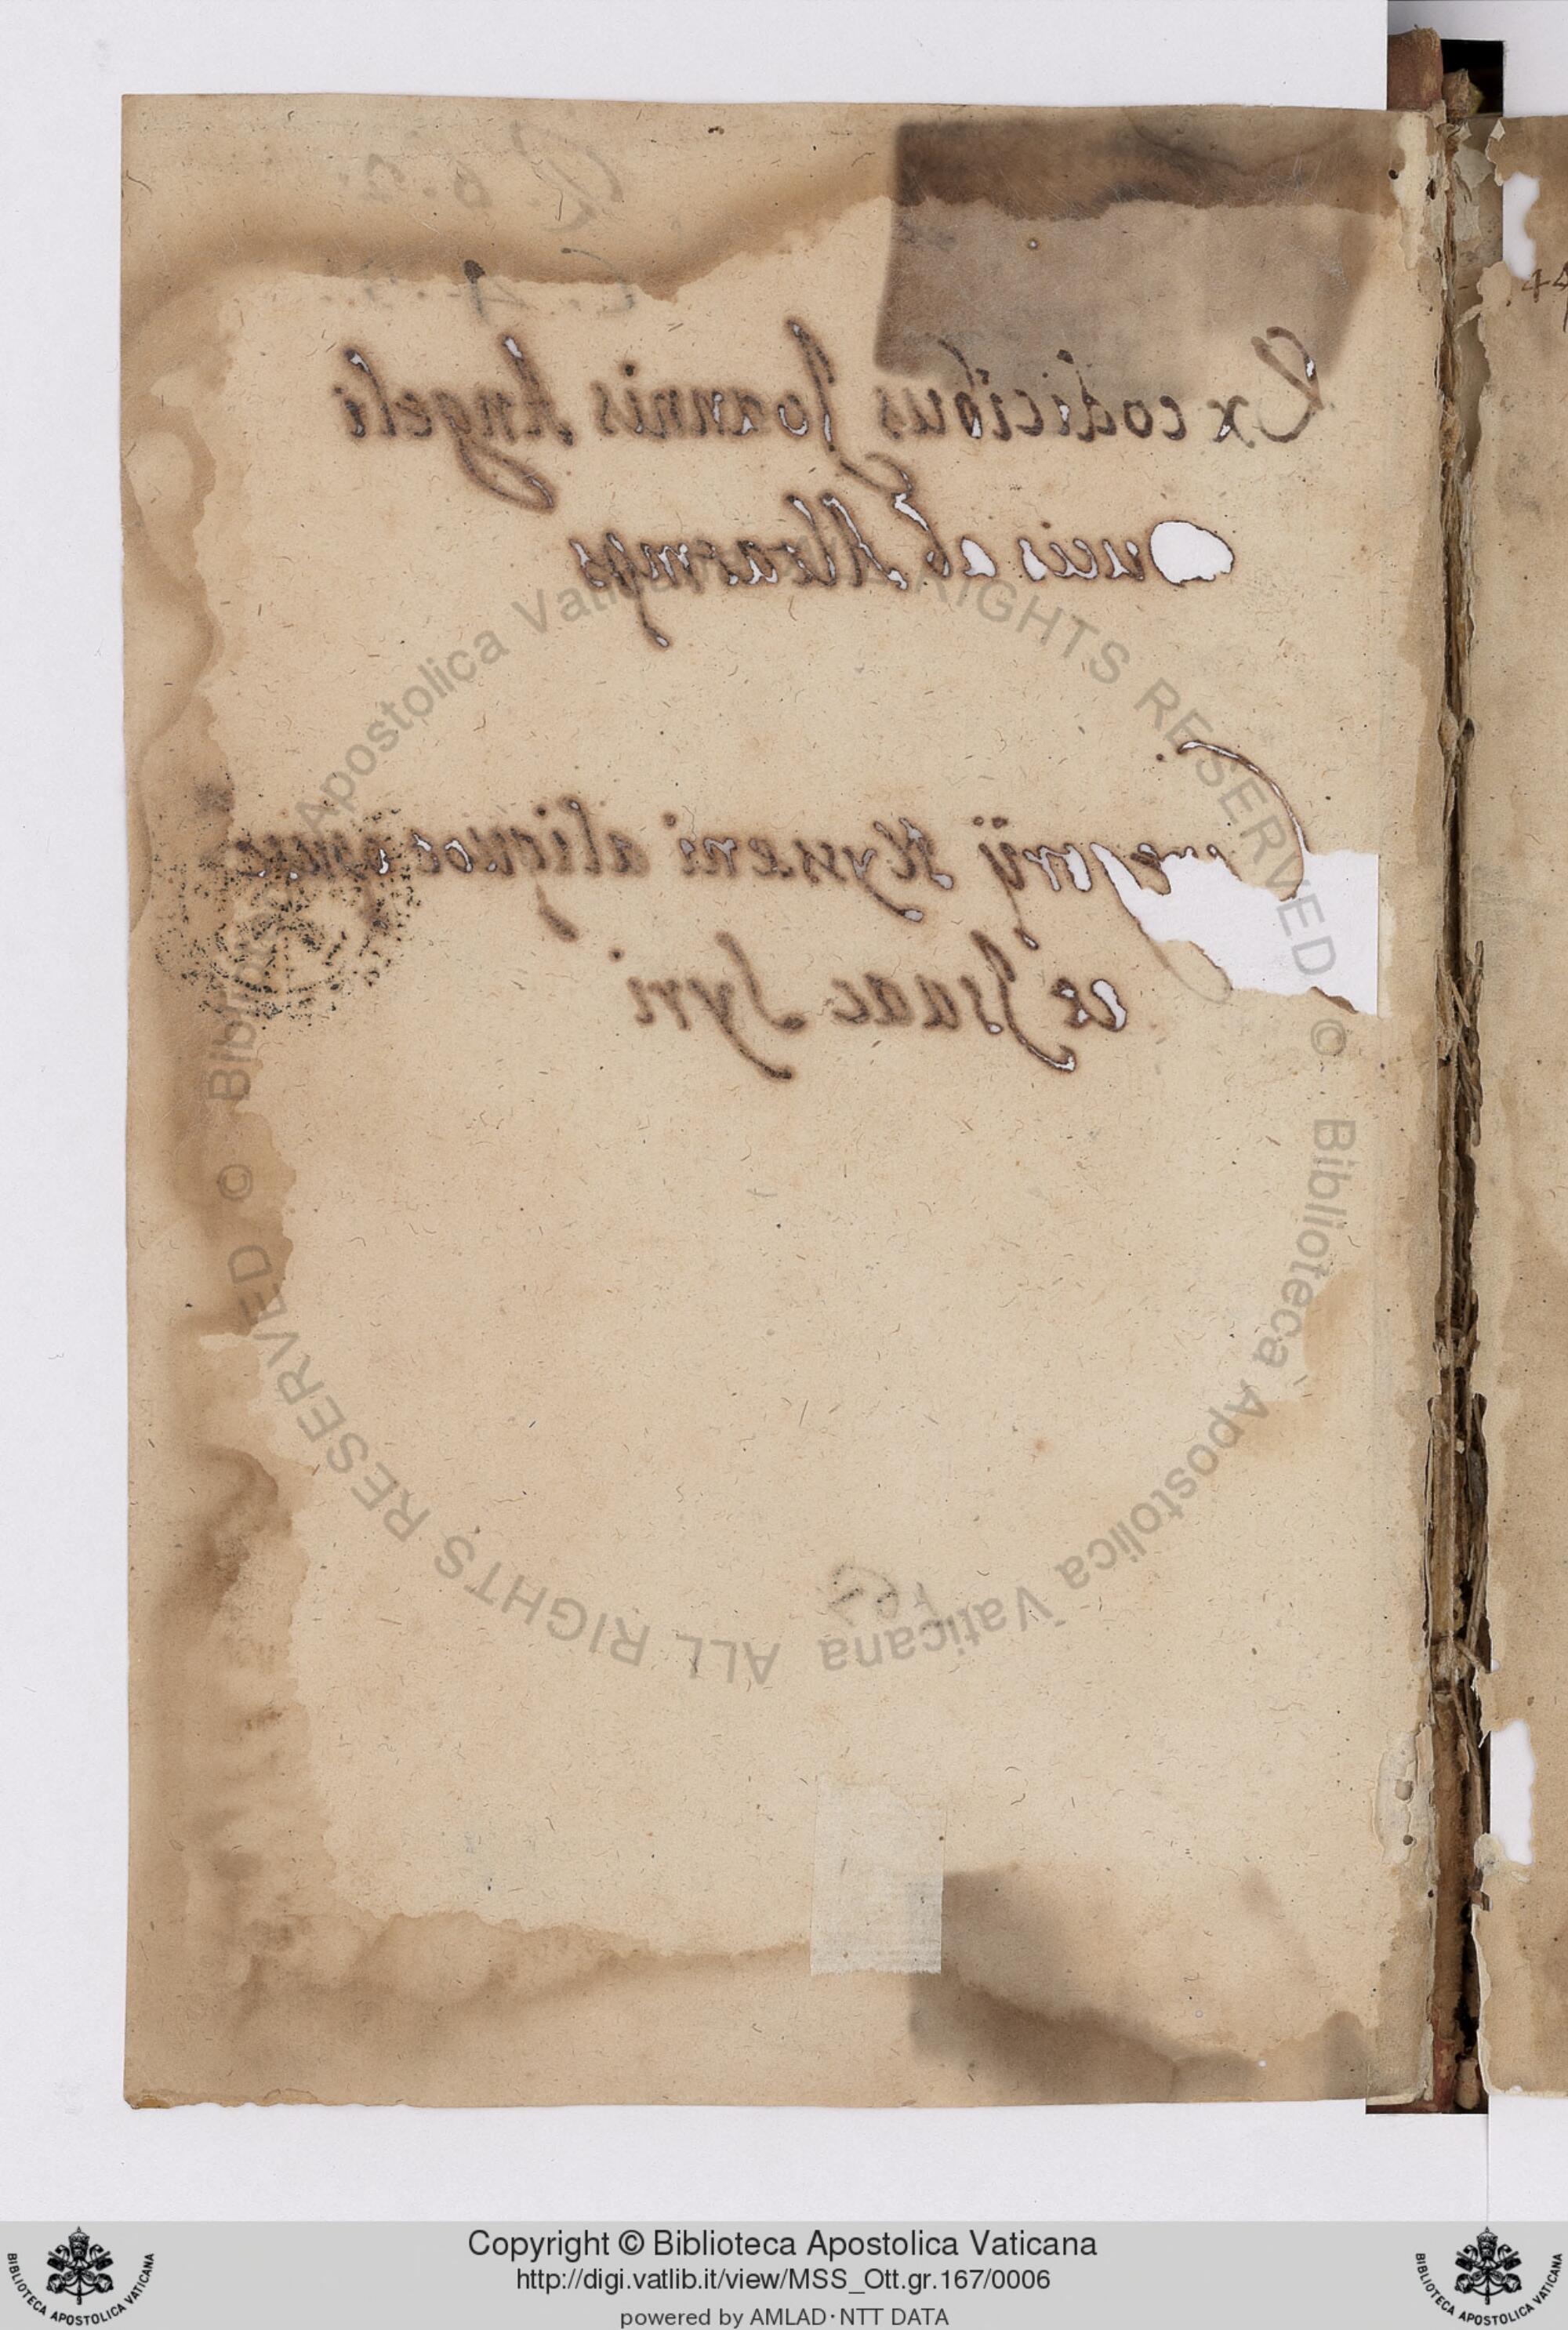 Ex codicibus Joannis Angeli
Ducis ab Altaemps
Gregorij Nysseni aliquot
et Isaac Syri
Copyright © Biblioteca Apostolica Vaticana
http://digi.vatlib.it/view/MSS_Ott.gr.167/0006
powered by AMLAD·NTT DATA
BIBLIOTECA APOSTOLICA VATICANA
BIBLIOTECA APOSTOLICA VATICANA
© Biblioteca Apostolica Vaticana ALL RIGHTS RESERVED © Biblioteca Apostolica Vaticana ALL RIGHTS RESERVED